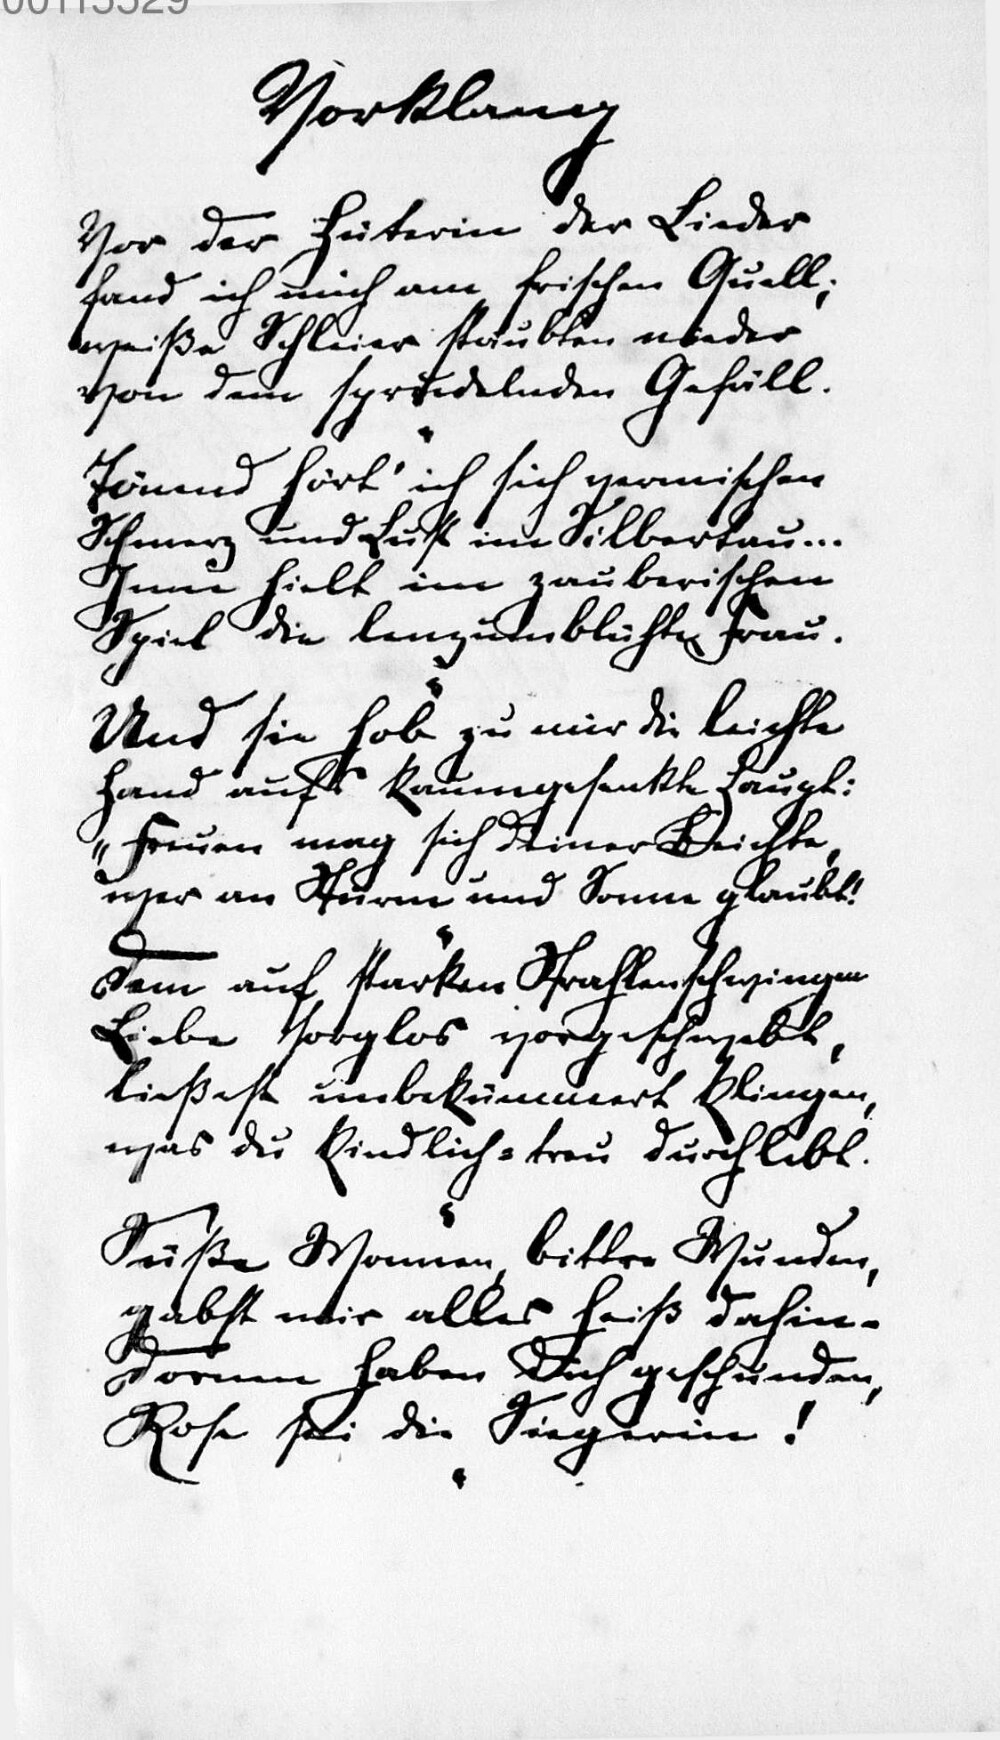 00115529
Vorklang
Vor der Hüterin der Lieder
fand ich mich am frischen Quell;
weiße Schleier stäubten nieder
von dem sprudelnden Gefäll.
Tönend hört' ich sich vermischen
Schmerz und Lust im Silbertau...
Inne hielt im zauberischen
Spiel die lenzumblühte Frau.
Und sie hob zu mir die leichte
Hand aufs kaumgesenkte Haupt:
„Freuen mag sich deiner Beichte,
wer an Sturm und Sonne glaubt!
Dem auf starken Strahlenschwingen
Liebe sorglos vorgeschwebt,
ließest unbekümmert klingen,
was du kindlich=treu durchlebt.
Süße Wonnen, bittre Wunden,
gabst mir alles heiß dahin-
Dornen haben Dich geschunden,
Rose sei die Siegerin!